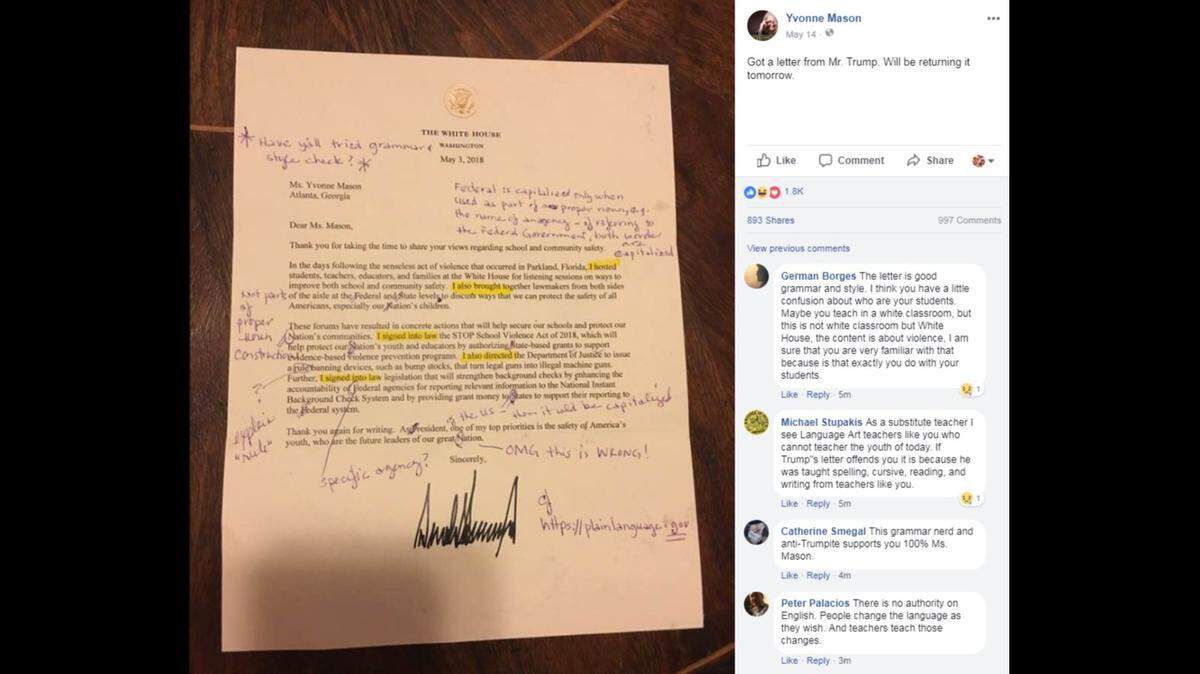 THE WHITE HOUSE
WASHINGTON
May 3, 2018
* Have y'all tried grammar &
style check? *
Ms. Yvonne Mason
Atlanta, Georgia
Federal is capitalized only when
used as part of a proper noun, e.g.
the name of an agency - if referring to
the Federal Government, both words
are
capitalized
Dear Ms. Mason,
Thank you for taking the time to share your views regarding school and community safety.
In the days following the senseless act of violence that occurred in Parkland, Florida, I hosted
students, teachers, educators, and families at the White House for listening sessions on ways to
improve both school and community safety. I also brought together lawmakers from both sides
of the aisle at the Federal and State levels to discuss ways that we can protect the safety of all
Americans, especially our Nation's children.
Not part
of
proper
noun
construction
These forums have resulted in concrete actions that will help secure our schools and protect our
Nation's communities. I signed into law the STOP School Violence Act of 2018, which will
help protect our Nation's youth and educators by authorizing State-based grants to support
evidence-based violence prevention programs. I also directed the Department of Justice to issue
a rule banning devices, such as bump stocks, that turn legal guns into illegal machine guns.
Further, I signed into law legislation that will strengthen background checks by enhancing the
accountability of Federal agencies for reporting relevant information to the National Instant
Background Check System and by providing grant money to States to support their reporting to
the Federal system.
?
explain
"rule"
of the US - then it wld be capitalized
Thank you again for writing. As President, one of my top priorities is the safety of America's
youth, who are the future leaders of our great Nation.
OMG this is WRONG!
Sincerely,
specific agency?
cf
https://plainlanguage.gov
Yvonne Mason
May 14
Got a letter from Mr. Trump. Will be returning it
tomorrow.
Like Comment Share
1.8K
893 Shares 997 Comments
View previous comments
German Borges The letter is good
grammar and style. I think you have a little
confusion about who are your students.
Maybe you teach in a white classroom, but
this is not white classroom but White
House, the content is about violence, I am
sure that you are very familiar with that
because is that exactly you do with your
students.
1
Like · Reply · 5m
Michael Stupakis As a substitute teacher I
see Language Art teachers like you who
cannot teacher the youth of today. If
Trump"s letter offends you it is because he
was taught spelling, cursive, reading, and
writing from teachers like you.
1
Like · Reply · 5m
Catherine Smegal This grammar nerd and
anti-Trumpite supports you 100% Ms.
Mason.
Like · Reply · 4m
Peter Palacios There is no authority on
English. People change the language as
they wish. And teachers teach those
changes.
Like · Reply · 3m